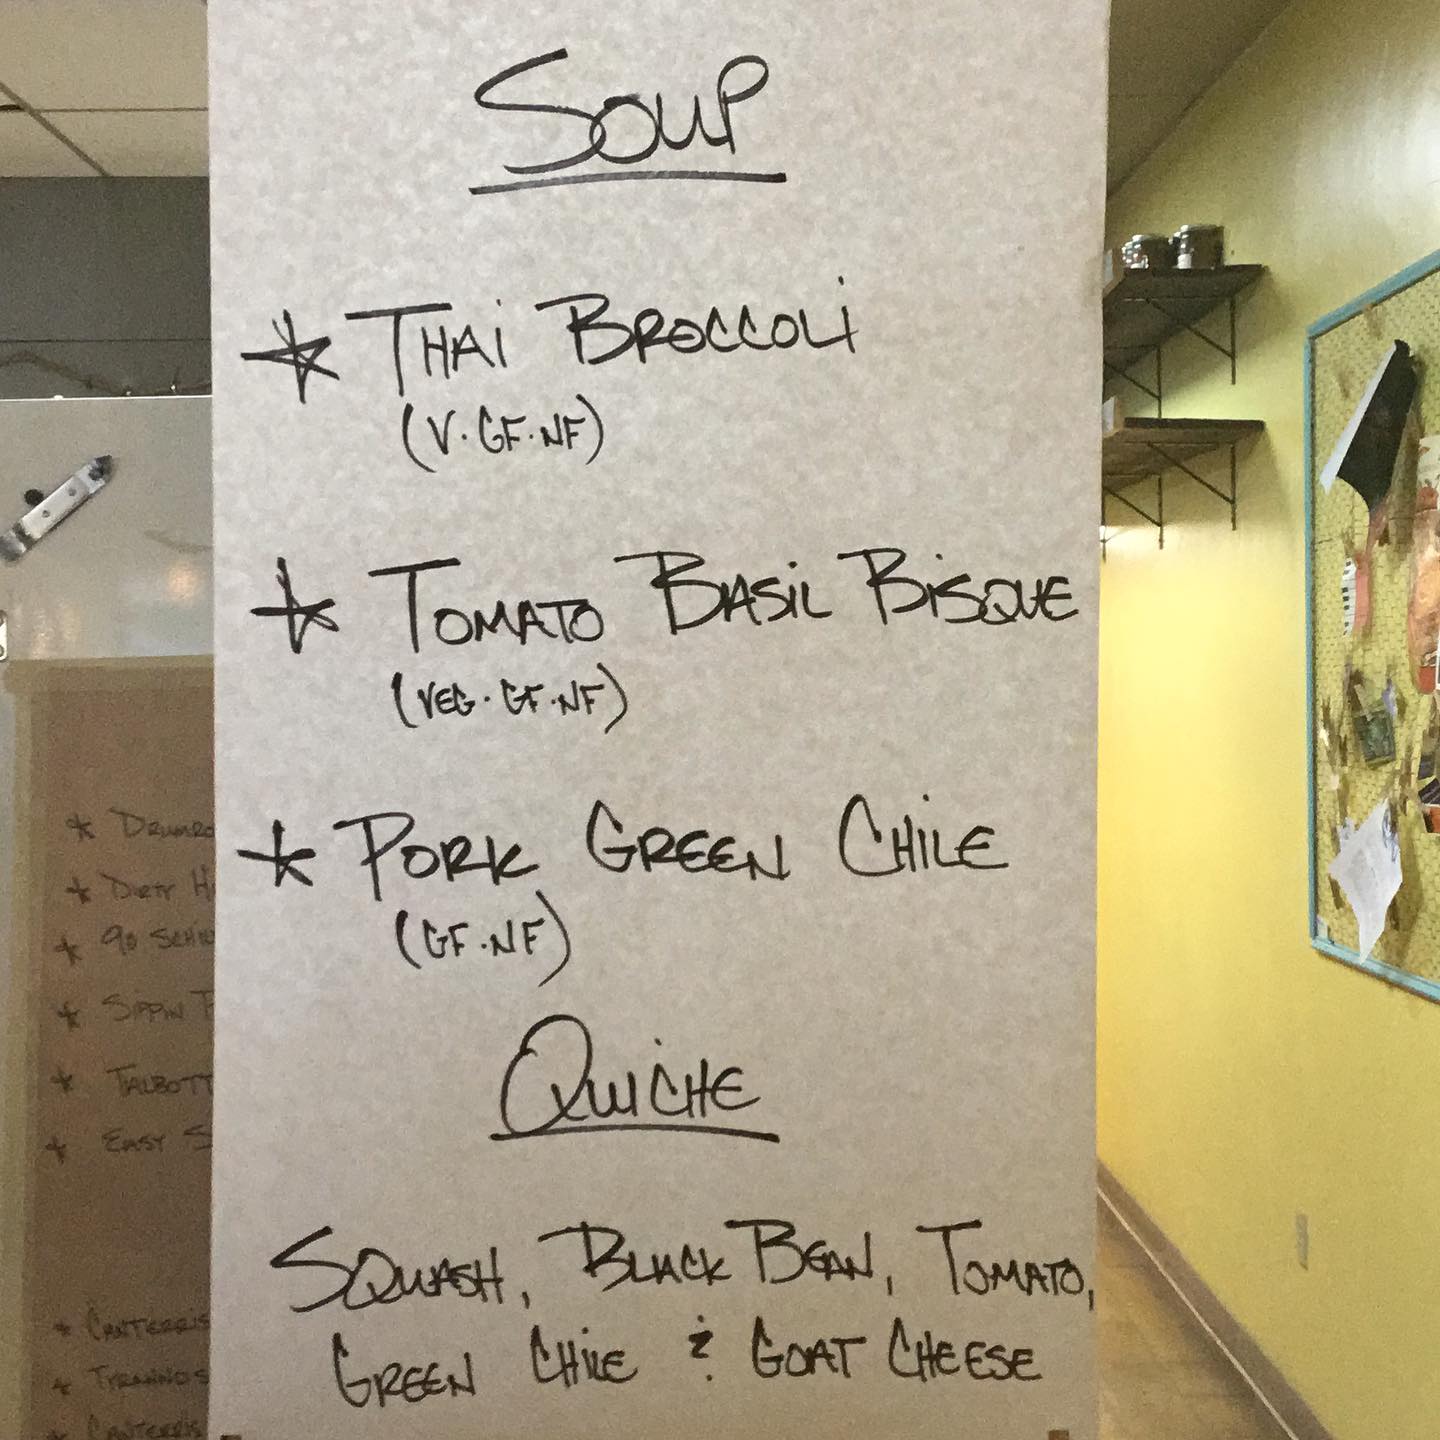 SOUP
* THAI BROCCOLI
(V·GF·NF)
* TOMATO BASIL BISQUE
(VEG·GF·NF)
* PORK GREEN CHILE
(GF·NF)
QUICHE
SQUASH, BLACK BEAN, TOMATO,
GREEN CHILE & GOAT CHEESE
* DRUMRO
* DIRTY H
* 90 SCHIL
* SIPPIN T
* TALBOTT
* EASY S
* CANTERRIS
* TYRANNOS
* CANTERRIS